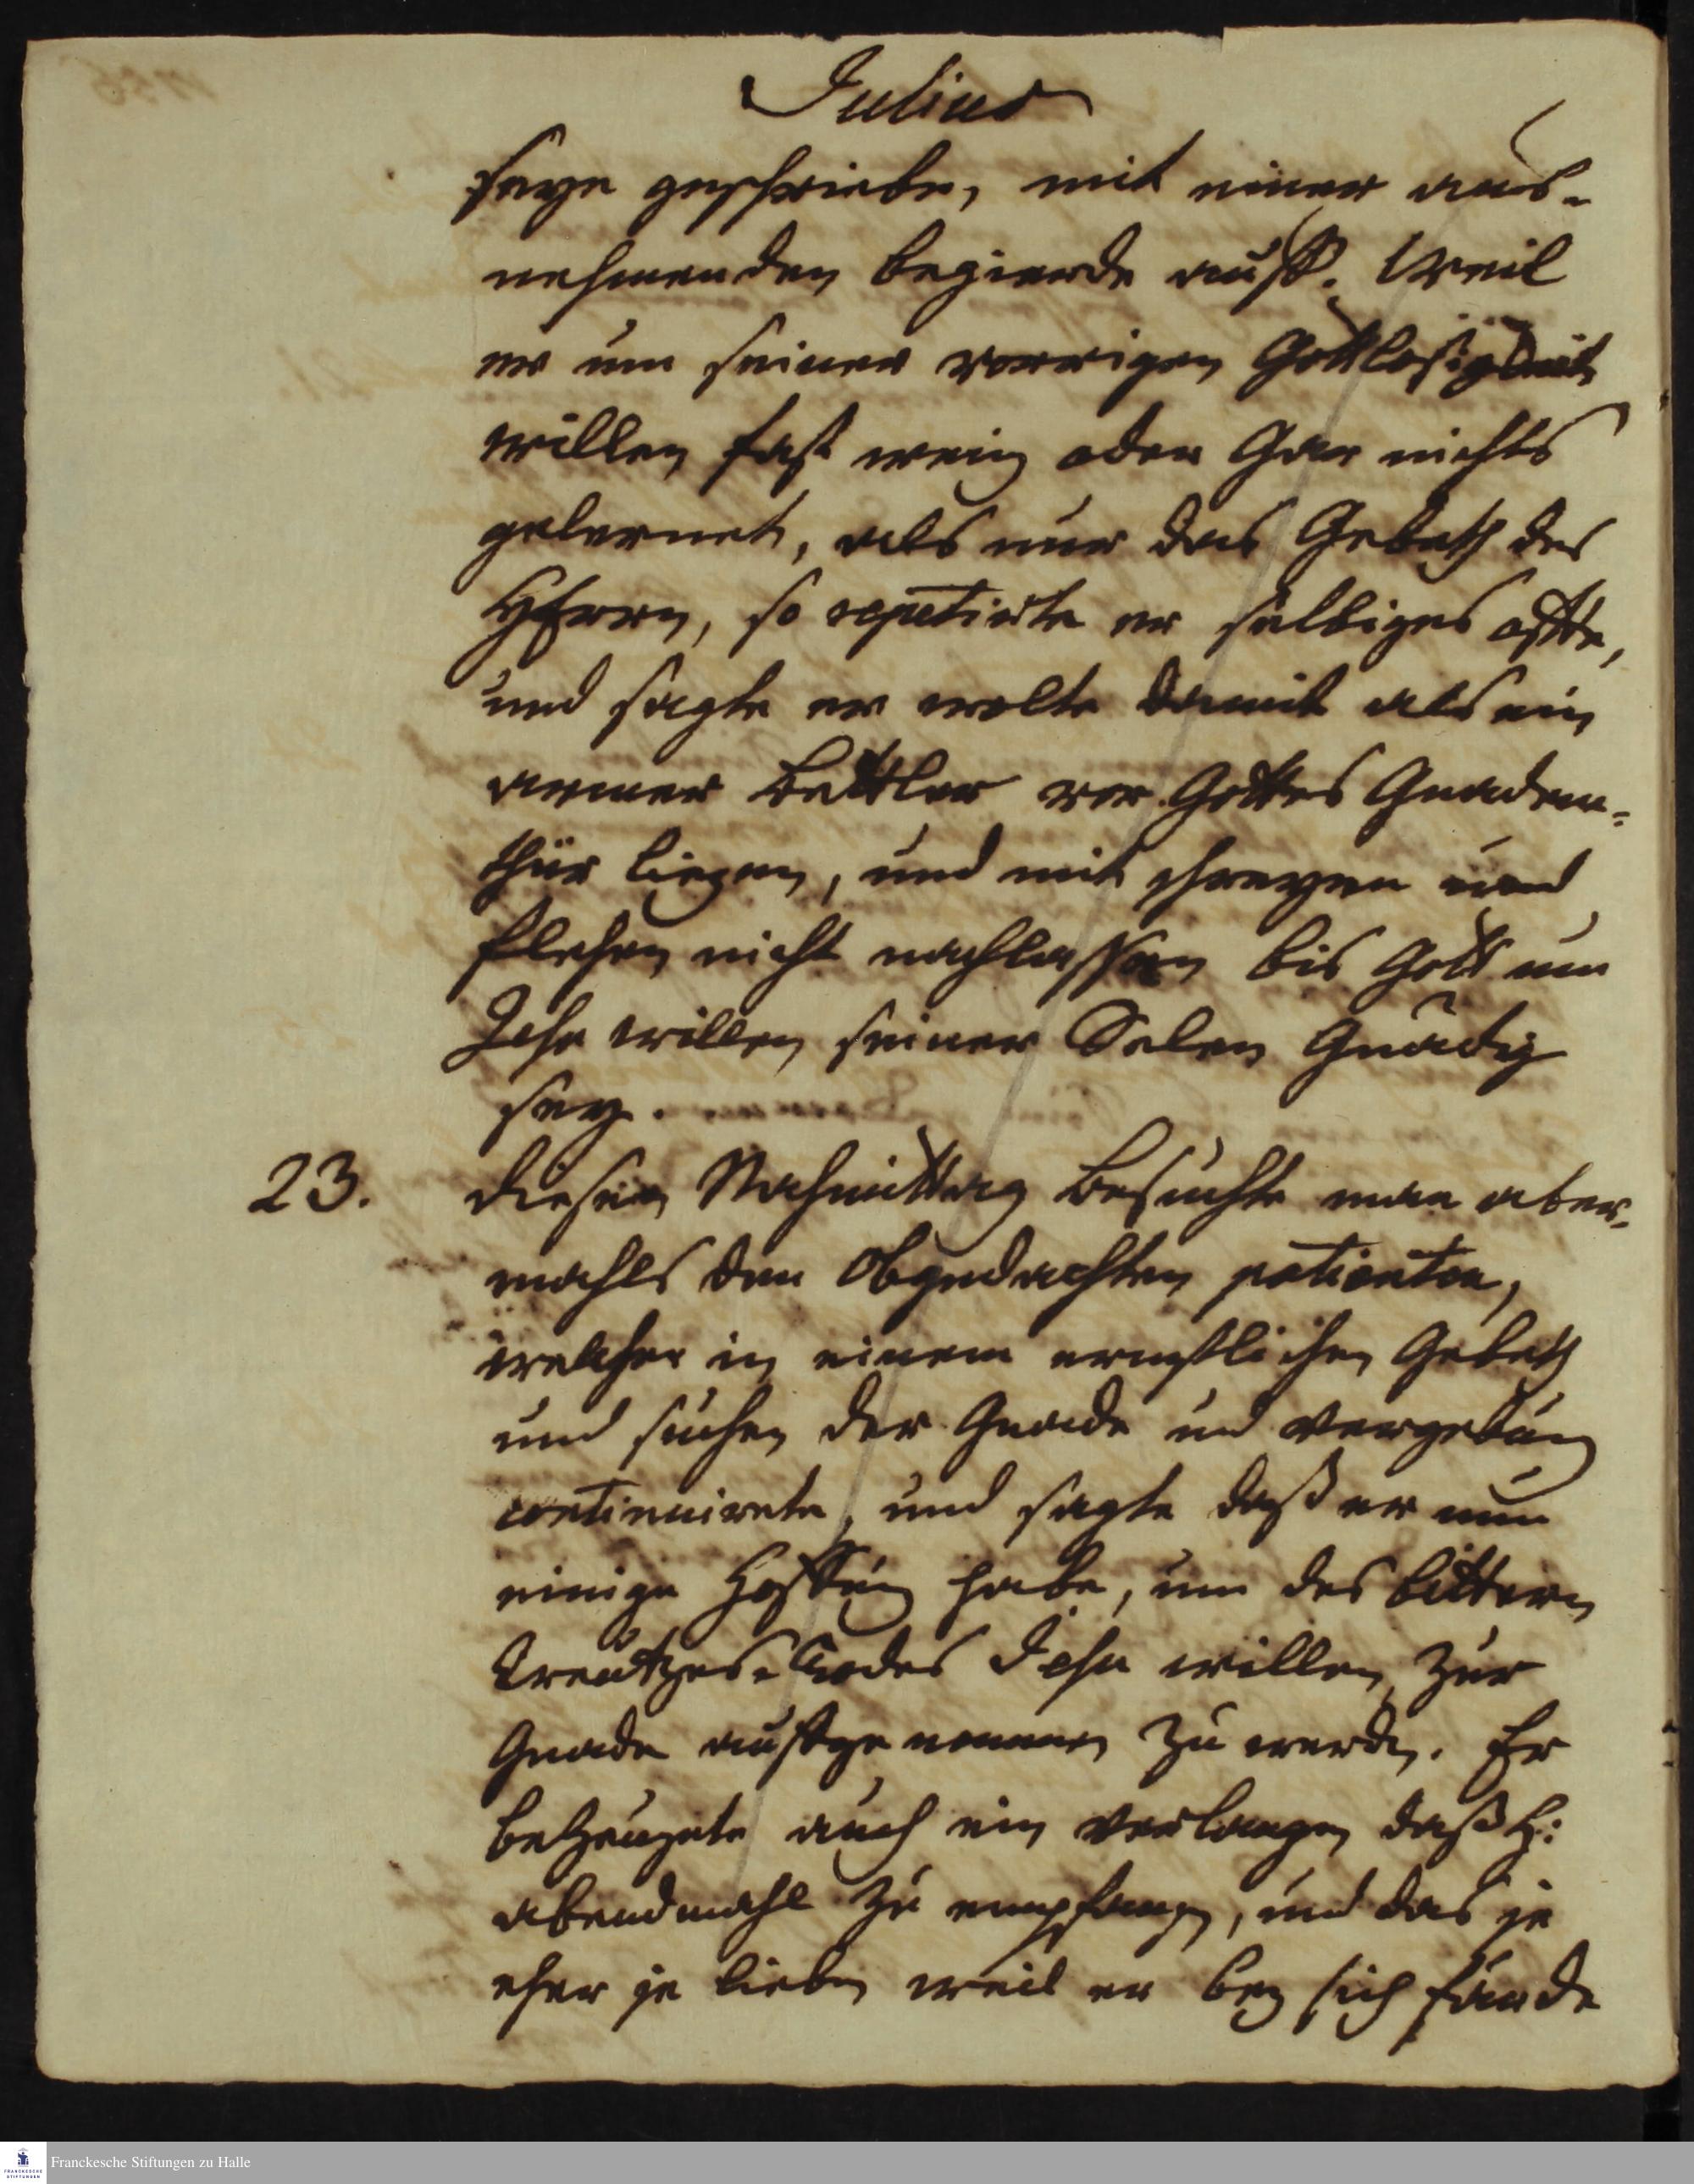 Julius
seye geschriebe, mit einer aus-
nehmenden begierde auff. Weil
er um seiner vorrigen Gottlosigkeit
willen fast wenig oder Gar nichts
gelernet, als nur das Gebeth des
HErrn, so repetirte er selbiges offte,
und sagte er wolte damit als ein
armer Bettler vor Gottes Gnaden-
thür liegen, und mit schreyen und
flehen nicht nachlassen bis Gott um
Jesu willen seiner Selen Gnädig
sey.
23. diesen Nachmittag Besuchte man aber-
mahls den Obgedachten patienten,
welcher in einem ernstlichen Gebeth
und suchen der Gnade und Vergebung
continuirete, und sagte daß er nun
einige Hoffnung habe, um des bittern
Creutzes-Todes Jesu willen zur
Gnade auffgenommen zu werden. Er
bezeugete auch ein Verlangen daß H:
abendmahl zu empfangen, und das je
eher je lieber weil er bey sich fünde
Franckesche Stiftungen zu Halle